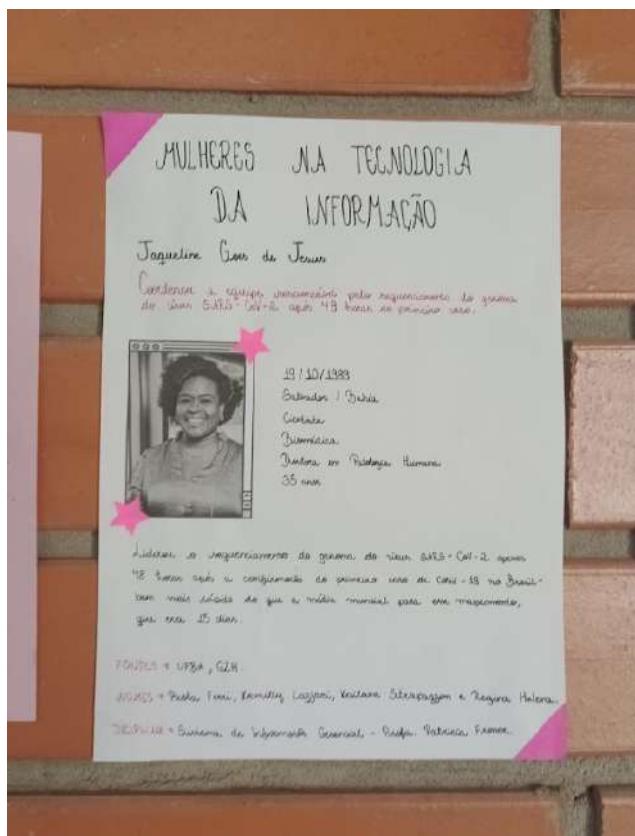 MULHERES NA TECNOLOGIA
DA INFORMAÇÃO
Jaqueline Goes de Jesus
Coordenou a equipe responsável pelo sequenciamento do genoma
do vírus SARS-CoV-2 após 48 horas do primeiro caso.
19/10/1989
Salvador / Bahia
Cientista
Biomédica
Doutora em Patologia Humana
35 anos
Liderou o sequenciamento do genoma do vírus SARS-CoV-2 apenas
48 horas após a confirmação do primeiro caso de Covid-19 no Brasil-
bem mais rápido do que a média mundial para esse mapeamento,
que era 15 dias.
FONTES + UFBA, GZH.
NOMES + Kemilly Lazzari, e Regina Helena.
DISCIPLINA + Sistema de Informação Gerencial - Profa. Patricia